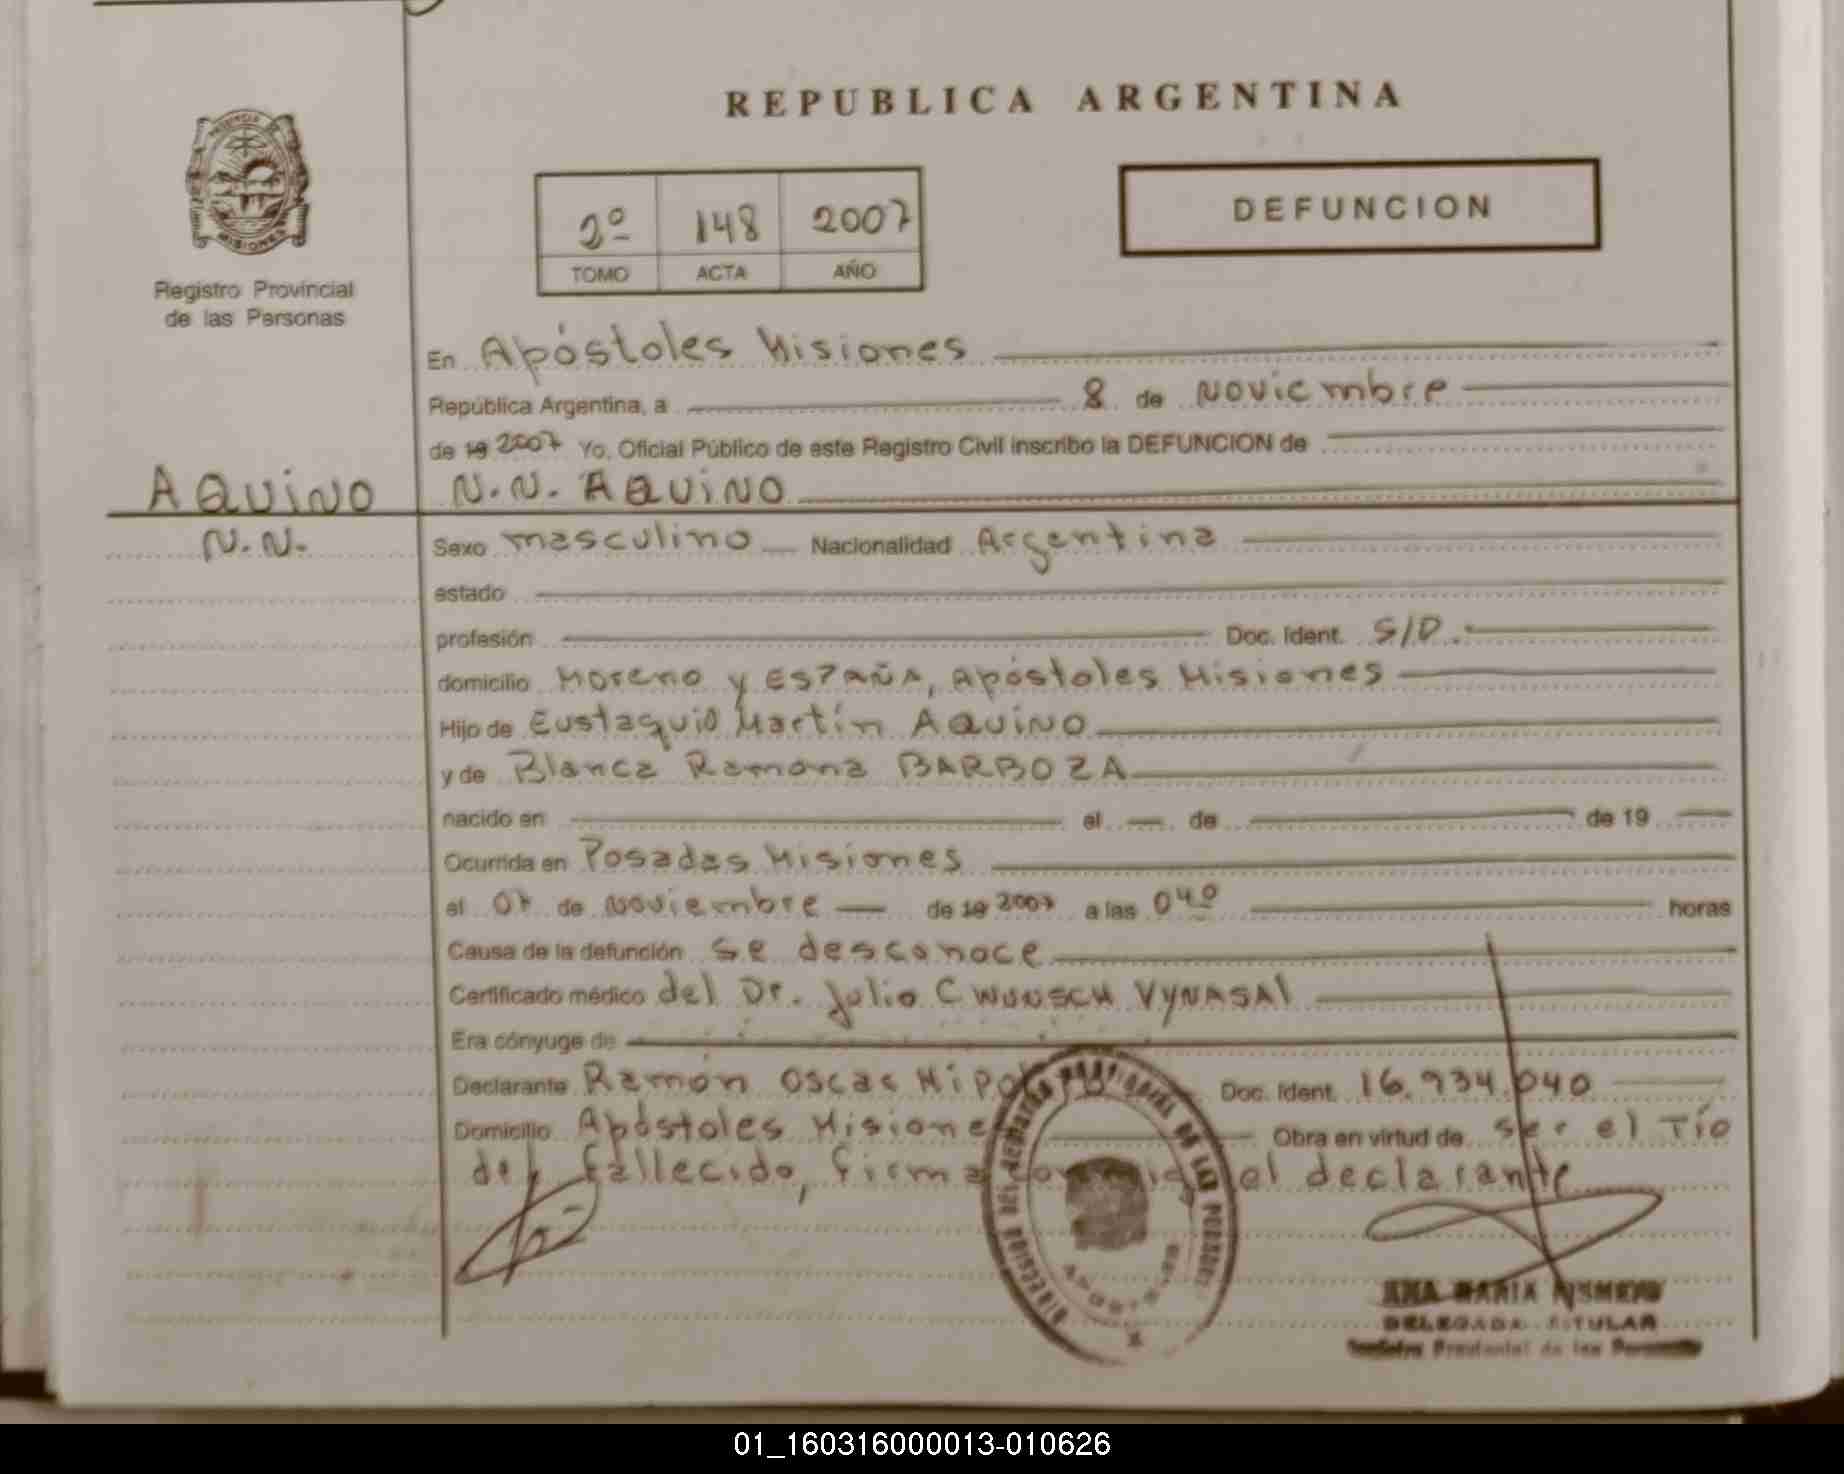 REPUBLICA ARGENTINA
PROVINCIA DE
MISIONES
Registro Provincial
de las Personas
2º 148 2007
TOMO ACTA AÑO
DEFUNCION
En Apóstoles Misiones
República Argentina, a 8 de Noviembre
de 19 2007 Yo, Oficial Público de este Registro Civil inscribo la DEFUNCION de
AQUINO
N.N.
N.N. AQUINO
Sexo masculino Nacionalidad Argentina
estado
profesión Doc. Ident. S/D.
domicilio Moreno y ESPAÑA, Apóstoles Misiones
Hijo de Eustaquio Martín AQUINO
y de Blanca Ramona BARBOZA
nacido en el de de 19
Ocurrida en Posadas Misiones
el 07 de Noviembre de 19 2007 a las 04º horas
Causa de la defunción se desconoce
Certificado médico del Dr. Julio C WUNSCH VYNASAl
Era cónyuge de
Declarante Ramón Oscar Doc. Ident. 16.934.040
Domicilio Apóstoles Misiones Obra en virtud de ser el Tío
del fallecido, firma el declarante
ANA MARIA
DELEGADA TITULAR
Provincial de las Personas
01_160316000013-010626